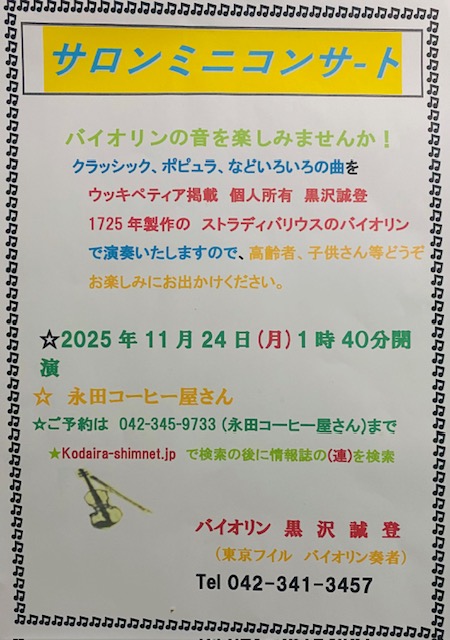 サロンミニコンサート
バイオリンの音を楽しみませんか！
クラッシック、ポピュラ、などいろいろの曲を
ウッキペティア掲載 個人所有 黒沢誠登
1725年製作の ストラディバリウスのバイオリン
で演奏いたしますので、高齢者、子供さん等どうぞ
お楽しみにお出かけください。
☆2025年11月24日(月)1時40分開
演
☆ 永田コーヒー屋さん
☆ご予約は 042-345-9733（永田コーヒー屋さん）まで
★Kodaira-shimnet.jp で検索の後に情報誌の(連)を検索
バイオリン 黒沢誠登
（東京フイル バイオリン奏者）
Tel 042-341-3457